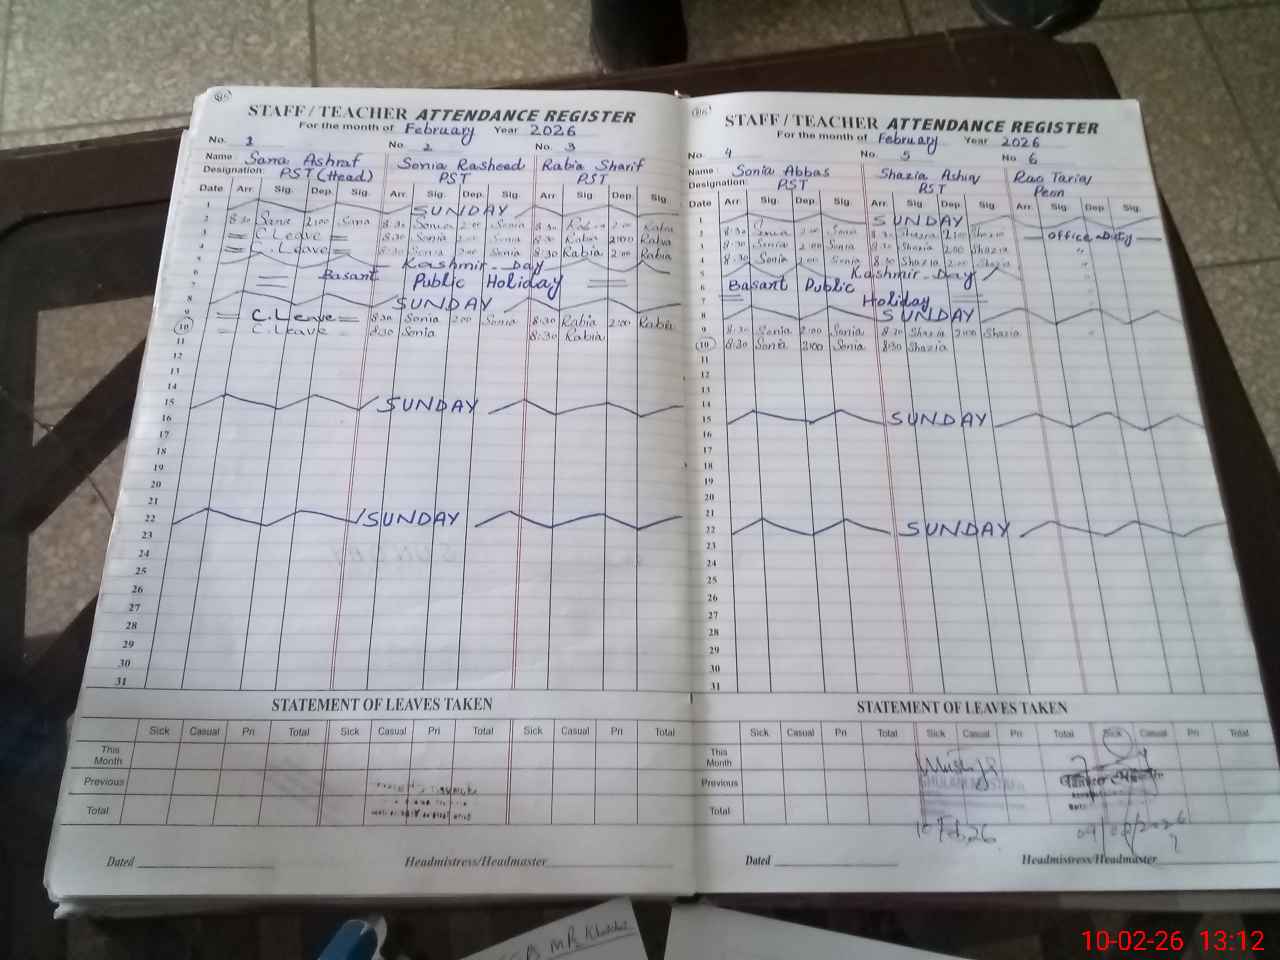 STAFF / TEACHER ATTENDANCE REGISTER
For the month of February Year 2026
No. 1 No. 2 No. 3
Name: Sana Ashraf Sonia Rasheed Rabia Sharif
Designation: PST (Head) PST PST
Date Arr. Sig. Dep. Sig. Arr. Sig. Dep. Sig. Arr. Sig. Dep. Sig.
1 SUNDAY
2 8:30 Sana 2:00 Sana 8:30 Sonia 2:00 Sonia 8:30 Rabia 2:00 Rabia
3 = C.Leave = 8:30 Sonia 2:00 Sonia 8:30 Rabia 2:00 Rabia
4 = C.Leave = 8:30 Sonia 2:00 Sonia 8:30 Rabia 2:00 Rabia
5 Kashmir - Day
6 Basant Public Holiday
7
8 SUNDAY
9 = C.Leave = 8:30 Sonia 2:00 Sonia 8:30 Rabia 2:00 Rabia
10 C.Leave 8:30 Sonia 8:30 Rabia
11
12
13
14
15 SUNDAY
16
17
18
19
20
21
22 SUNDAY
23
24
25
26
27
28
29
30
31
STATEMENT OF LEAVES TAKEN
Sick Casual Pri Total Sick Casual Pri Total Sick Casual Pri Total
This Month
Previous
Total
Dated Headmistress/Headmaster
STAFF / TEACHER ATTENDANCE REGISTER
For the month of February Year 2026
No. 4 No. 5 No. 6
Name: Sonia Abbas Shazia Rao Tariq
Designation: PST PST Peon
Date Arr. Sig. Dep. Sig. Arr. Sig. Dep. Sig. Arr. Sig. Dep. Sig.
1 SUNDAY
2 8:30 Sonia 2:00 Sonia 8:30 Shazia 2:00 Shazia
3 8:30 Sonia 2:00 Sonia 8:30 Shazia 2:00 Shazia office Duty
4 8:30 Sonia 2:00 Sonia 8:30 Shazia 2:00 Shazia "
5 Kashmir - Day
6 Basant Public
7 Holiday
8 SUNDAY
9 8:30 Sonia 2:00 Sonia 8:30 Shazia 2:00 Shazia
10 8:30 Sonia 2:00 Sonia 8:30 Shazia
11
12
13
14
15 SUNDAY
16
17
18
19
20
21
22 SUNDAY
23
24
25
26
27
28
29
30
31
STATEMENT OF LEAVES TAKEN
Sick Casual Pri Total Sick Casual Pri Total Sick Casual Pri Total
This Month
Previous
Total
10 Feb, 26 09/02/2026
Dated Headmistress/Headmaster
10-02-26 13:12